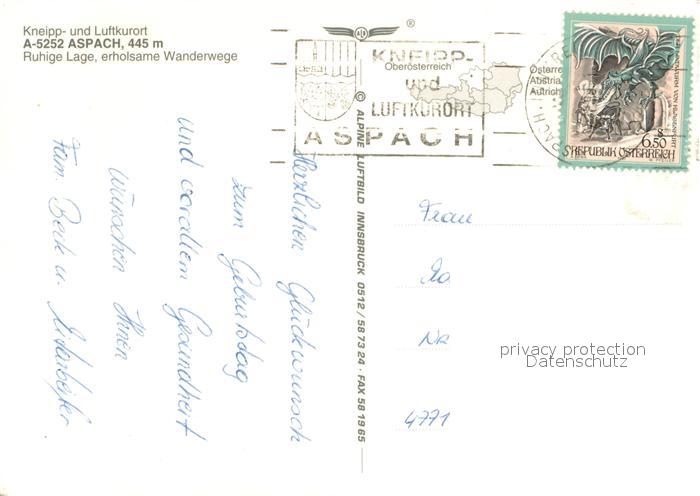 Kneipp- und Luftkurort
A-5252 ASPACH, 445 m
Ruhige Lage, erholsame Wanderwege
®
KNEIPP-
Oberösterreich
und
LUFTKURORT
ASPACH
Österre
Austria
Autrich
6,50
S
REPUBLIK ÖSTERREICH
© ALPINE LUFTBILD INNSBRUCK 0512 / 58 73 24 · FAX 58 19 65
Herzlichen Glückwunsch
zum Geburtstag
und vorallem Gesundheit
wünschen Ihnen
Fam. Beck u. Mitarbeiter
Frau
Nr
4771
privacy protection
Datenschutz